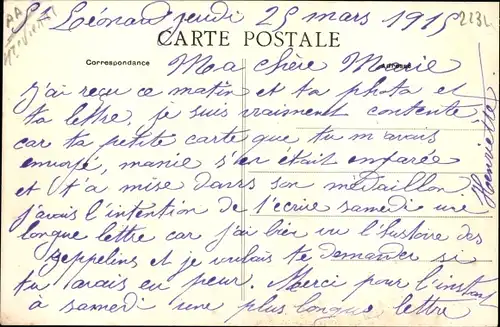 St Léonard jeudi 25 mars 1915
CARTE POSTALE
Correspondance
Adresse
Ma chère Marie
J'ai reçu ce matin et ta photo et
ta lettre, je suis vraiment contente,
car ta petite carte que tu m'avais
envoyé, manie s'en était emparée
et t'a mise dans son médaillon,
j'avais l'intention de t'écrire samedi une
longue lettre car j'ai bien vu l'histoire des
zeppelins et je voulais te demander si
tu avais eu peur. Merci pour l'instant
à samedi une plus longue lettre
Henriette